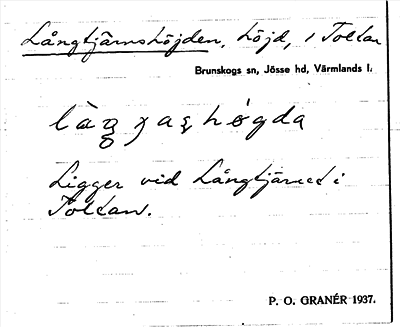 Långtjärnshöjden, höjd, i Tolcan
Brunskogs sn, Jösse hd, Värmlands l.
Ligger vid Långtjärnet i
Tolcan.
P. O. GRANÉR 1937.